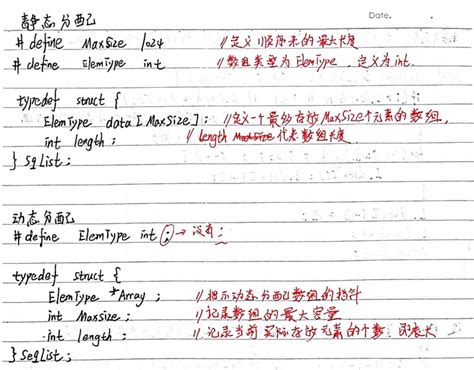 静态分配
Date.
# define MaxSize 1024 //定义顺序表的最大长度
# define ElemType int //数组类型为ElemType 定义为int.
typedef struct {
ElemType data[MaxSize]; //定义一个最多存放MaxSize个元素的数组.
int length; // length MaxSize 代表数组长度
} SqList;
动态分配
# define ElemType int ; → 没有;
typedef struct {
ElemType *Array; //指示动态分配数组的指针
int Maxsize; //记录数组的最大容量
int length; //记录当前实际存放元素的个数 即表长
} SeqList;